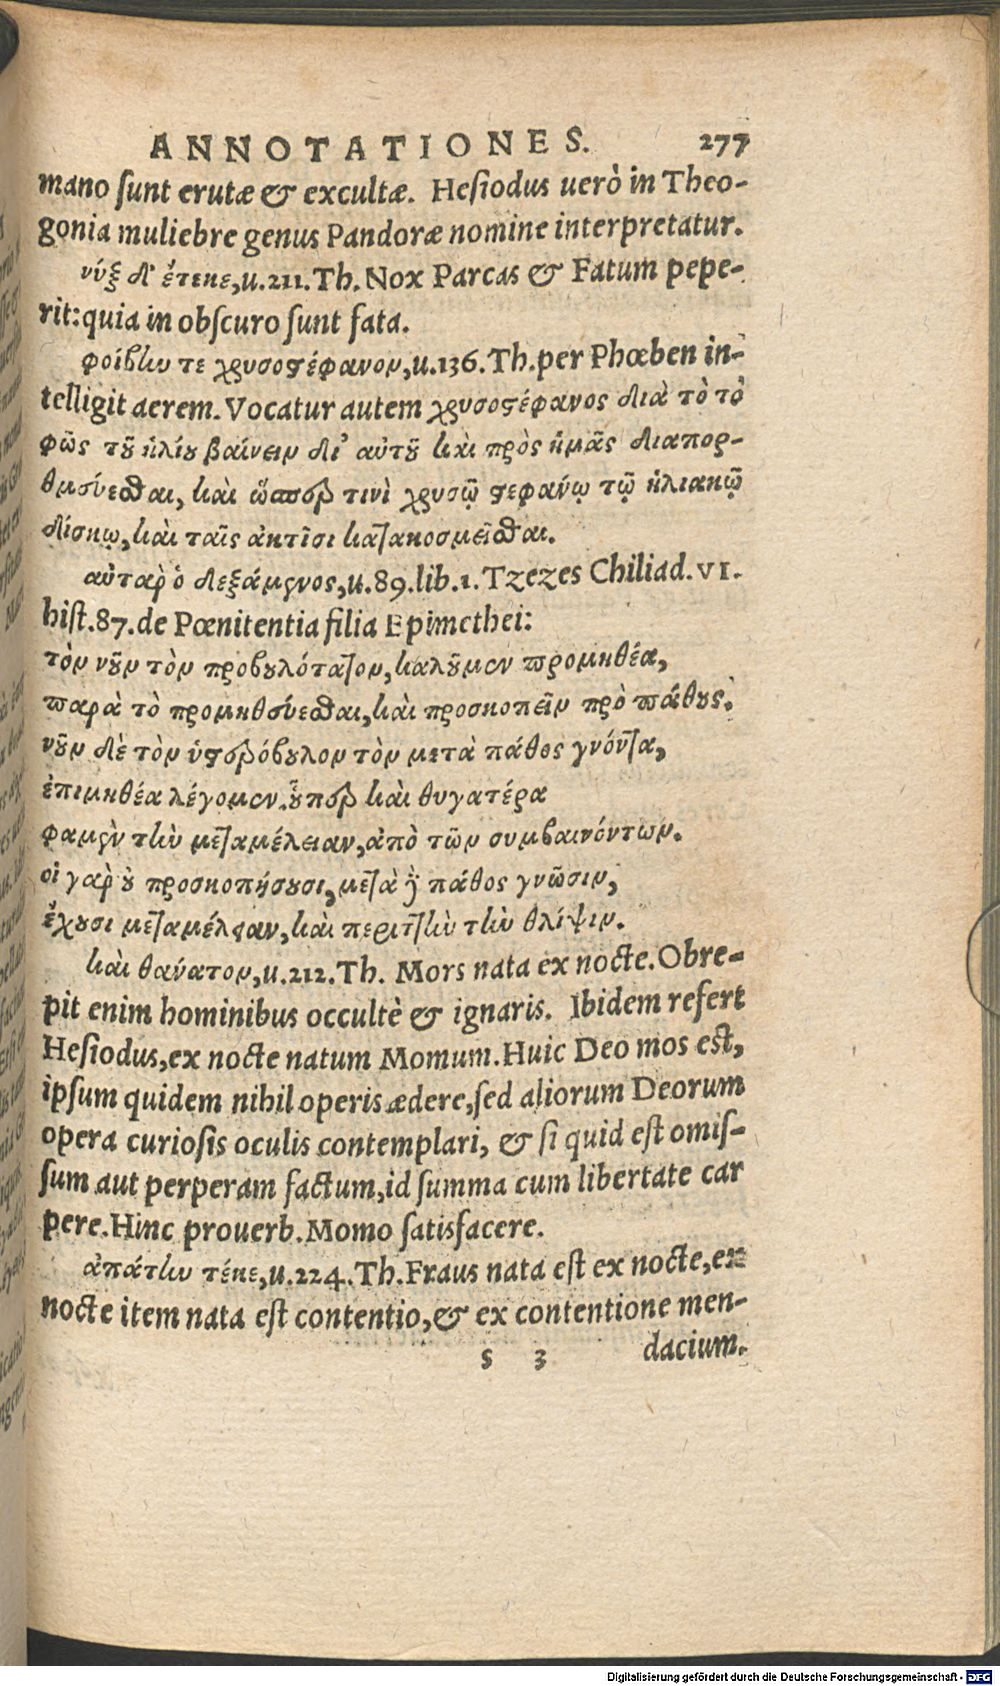 ANNOTATIONES. 277
mano ſunt erutæ & excultæ. Heſiodus uerò in Theo-
gonia muliebre genus Pandoræ nomine interpretatur.
νύξ δ' ἔτεκε, u. 211. Th. Nox Parcas & Fatum pepe-
rit: quia in obſcuro ſunt fata.
φοίβην τε χρυσοϛέφανον, u. 136. Th. per Phœben in-
telligit aerem. Vocatur autem χρυσοϛέφανος διὰ τὸ τὸ
φῶς τȣ͂ ἡλίȣ βαίνειν δι' αὐτȣ͂ καὶ πρὸς ἡμᾶς διαπορ-
θμεύεσθαι, καὶ ὥσπερ τινὶ χρυσῷ ϛεφάνῳ τῷ ἡλιακῷ
δίσκῳ, καὶ ταῖς ἀκτῖσι κατακοσμεῖσθαι.
αὐταρ̀ ὁ δεξάμενος, u. 89. lib. 1. Tzezes Chiliad. VI.
hiſt. 87. de Pœnitentia filia Epimethei:
τὸν νȣ͂ν τὸν προβȣλότατον, καλȣ͂μεν προμηθέα,
παρὰ τὸ προμηθεύεσθαι, καὶ προσκοπεῖν πρὸ πάθȣς.
νȣ͂ν δὲ τὸν ὑϛερόβȣλον τὸν μετὰ πάθος γνόντα,
ἐπιμηθέα λέγομεν. ȣ̔͂περ καὶ θυγατέρα
φαμὲν τὴν μεταμέλειαν, ἀπὸ τῶν συμβαινόντων.
οἱ γαρ̀ ȣ̓ προσκοπήσȣσι, μετὰ δὲ πάθος γνῶσιν,
ἔχȣσι μεταμέλειαν, καὶ περιττὴν τὴν θλίψιν.
καὶ θάνατον, u. 212. Th. Mors nata ex nocte. Obre-
pit enim hominibus occultè & ignaris. Ibidem refert
Heſiodus, ex nocte natum Momum. Huic Deo mos eſt,
ipſum quidem nihil operis ædere, ſed aliorum Deorum
opera curioſis oculis contemplari, & ſi quid eſt omiſ-
ſum aut perperam factum, id ſumma cum libertate car
pere. Hinc prouerb. Momo ſatisfacere.
ἀπάτην τέκε, u. 224. Th. Fraus nata eſt ex nocte, ex
nocte item nata eſt contentio, & ex contentione men-
s 3 dacium.
Digitalisierung gefördert durch die Deutsche Forschungsgemeinschaft - DFG